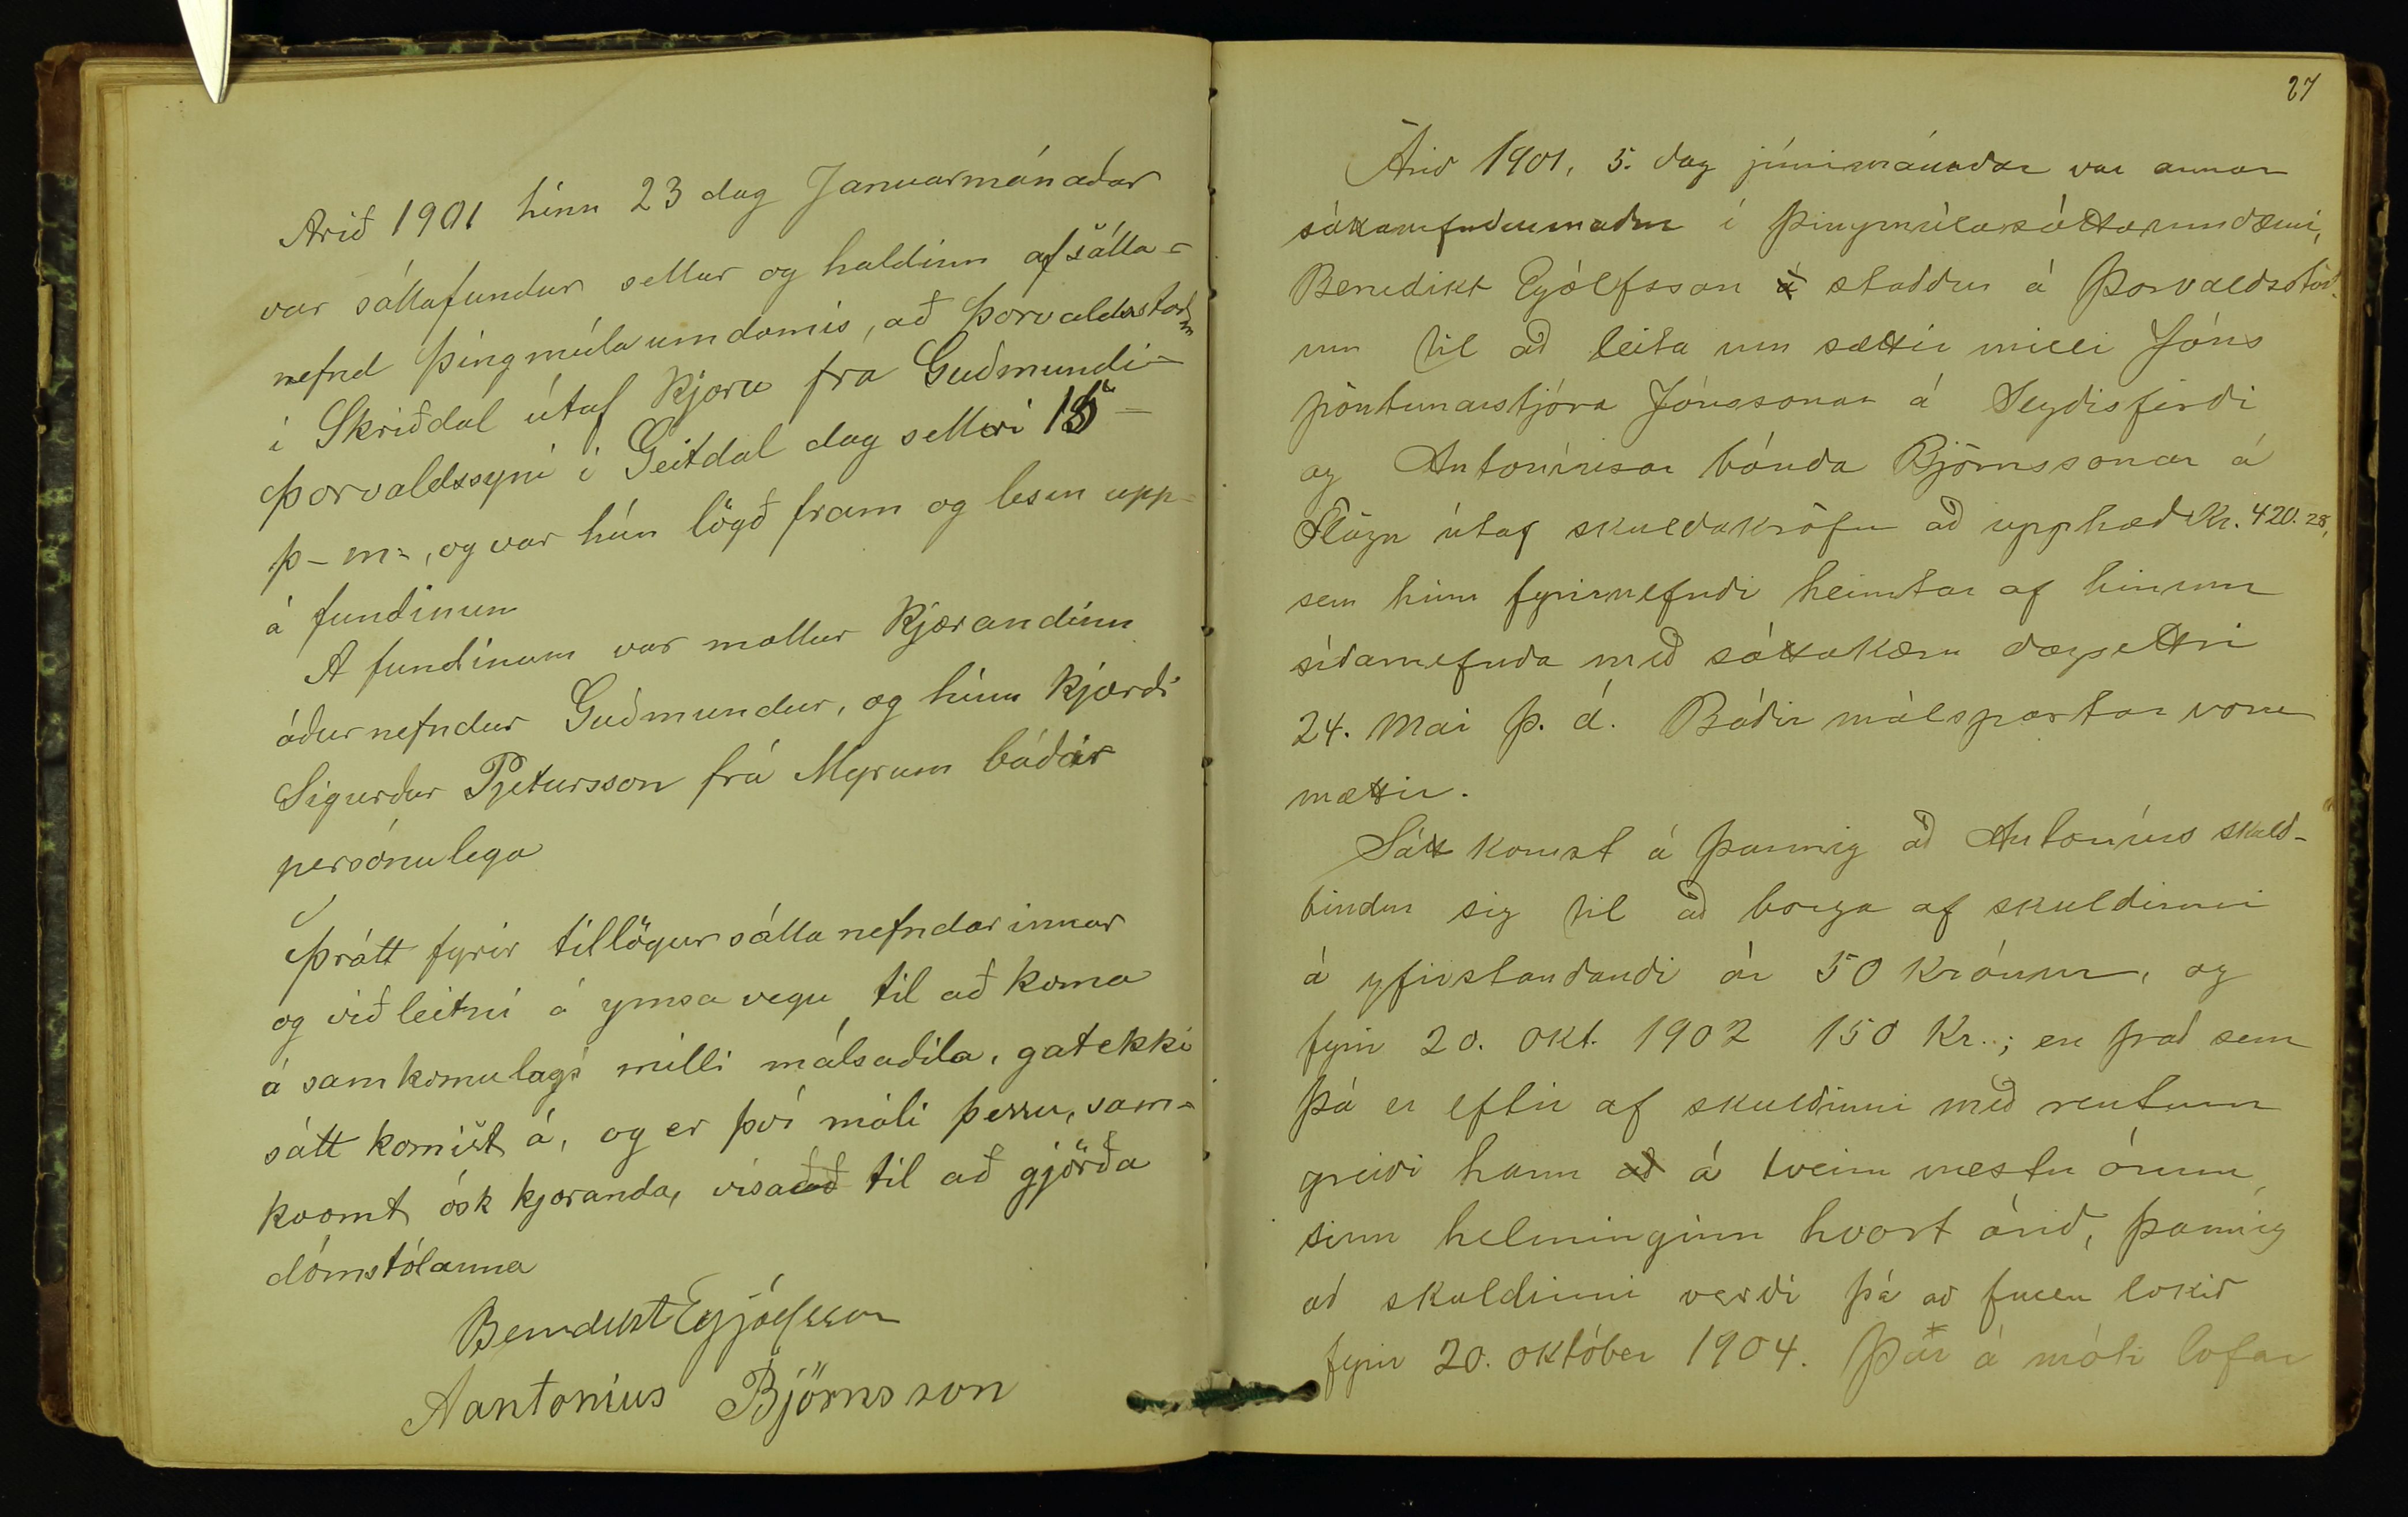 Arið 1901 hinn 23 dag Januarmánaðar
var sáttafundur settur og haldinn af sátta-
nefnd Þingmúlaumdæmis, að Þorvaldsstöðum
í Skriðdal útaf kjæru frá Guðmundi
Þorvaldssyni í Geitdal dag settri 15
þ-m-, og var hún lögð fram og lesin upp-
á fundinum
A fundinum var mættur kjærandinn
áður nefndur Guðmundur, og hinn kjærði
Sigurður Pjetursson frá Myrum báðir
persónulega
Þrátt fyrir tillögur sátta nefndarinnar
og viðleitni á ymsa vegu til að koma
á samkomulagi milli málsaðila, gat ekki
sátt komist á, og er því máli þessu, sam-
kvæmt ósk kjæranda, vísað til að gjörða
dómstólanna
Benedikt Eyjólfsson
Aantonius Björnsson
27
Árið 1901, 5. dag júnimánaðar var annar
sáttanefndarmaður í Þingmúlasáttaumdæmi,
Benedikt Eyjólfsson á staddur á Þorvaldsstöð-
um til að leita um sættir milli Jóns
pöntunarstjóra Jónssonar á Seyðisfirði
og Antoníusar bónda Björnssonar á
Flögu útaf skuldakröfu að upphæð Kr. 420.28,
sem hinn fyrirnefndi heimtar af hinum
síðarnefnda með sáttakæru dagsettri
24. Mai þ. á. Báðir málspartar voru
mættir.
Sátt komst á þannig að Antoníus skuld-
bindur sig til að borga af skuldinni
á yfirstandandi ár 50 krónur, og
fyrir 20. okt. 1902 150 Kr.; en það sem
þá er eftir af skuldinni með rentum
greiði hann að á tveim næstu árum,
sinn helminginn hvort árið, þannig
að skuldinni verði þá að fullu lokið
fyrir 20. október 1904. Þar á móti lofar